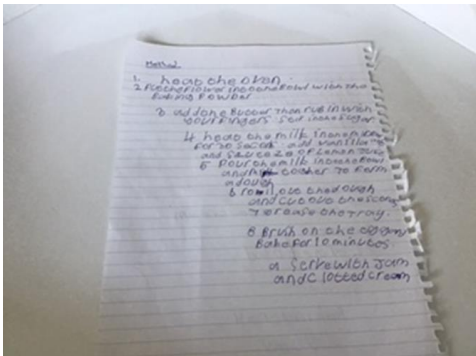 Method
1. heat the oven
2 Put the flower in to the bowl with the
Baking Powder
3 add the Butter Then rub in with
your fingers Stir in the Sugar
4 heat the milk in the
for 30 add vanilla
and Squeeze of Lemon Juice
5 Pour the milk in to the Bowl
and together to form
a dough
6 roll out the dough
and cut out the
7 crease the tray.
8 Brush on the
Bake for 10 minutes
9 Serve with Jam
and Clotted cream